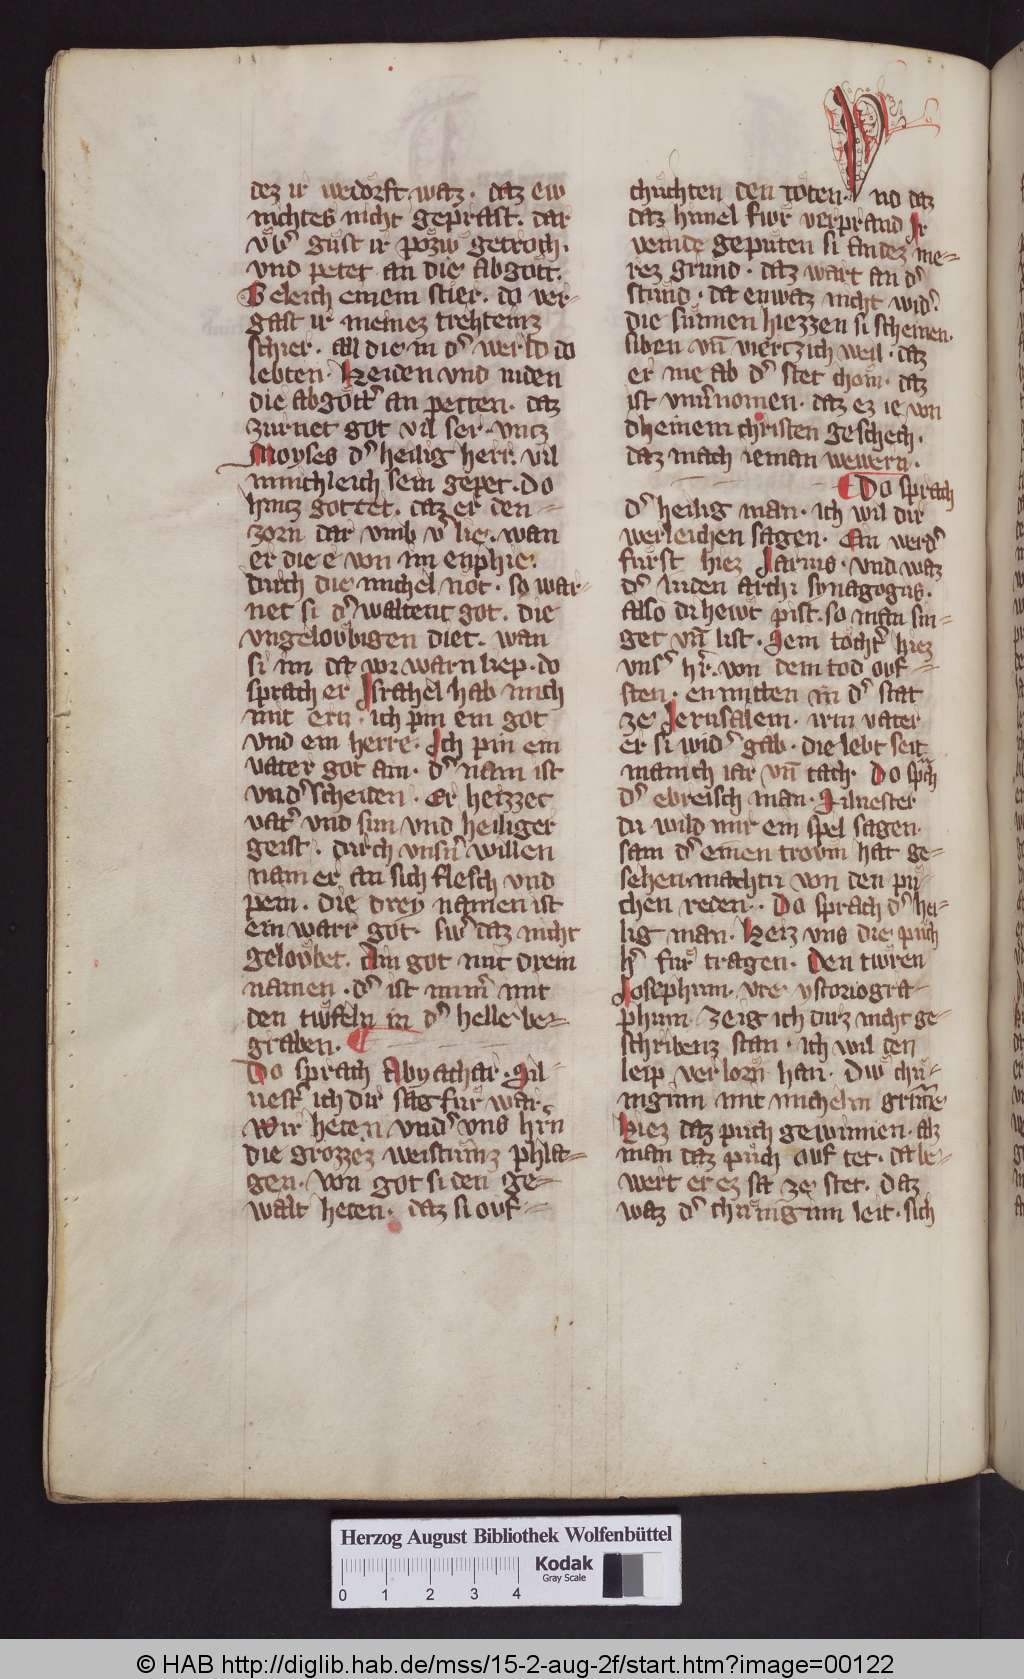 dez ir wedorft waz · daz ew
nichtes nicht geprast · dar
vbͦ gust ir pozw getroch ·
vnd petet an die abgott ·
Geleich einem stier · do ver-
gast ir meinez trehteinz
schier · all die in dͦ werld do
lebten · Heiden vnd iuden
die abgottͦ an petten · daz
zurnet got vil ser · vntz
Moyses dͦ heilig herr · vil
innichleich sein gepet · Do
hintz gottet · daz er den
zorn dar vmb vͦ lie · wan
er die e von im enphie ·
durch die michel not · so war-
net si dͦ waltent got · die
vngelovbigen diet · wan
si im da vor warn liep · do
sprach er Israhel hab mich
mit ern · ich pin ein got
vnd ein herre · Ich pin ein
vater got ain · dͦ nam ist
vndͦscheiden · Er heizzet
vatͦ vnd sun vnd heiliger
geist · durch vnsn̄ willen
nam er an sich flesch vnd
pein · die drey namen ist
ein warr got · swͦ daz nicht
geloubet · Ain got mit drein
namen · dͦ ist immͦ mit
den twfeln in dͦ helle be-
graben ·
Do sprach Abyachar · Sil-
uestͦ ich dir sag fur war
Wir heten vndͦ vns hrn̄
die grozzez weistumz phla-
gen · von got si den ge-
walt heten · daz si ouf
chuchten den toten · Vnd daz
daz himel fwr verprand Ir
veinde geputen si an dez me-
rez grund · daz wart an dͦ
stund · da enwaz nicht widͦ
die sunnen hiezzen si scheinen ·
siben vn̄ viertzich weil · daz
er nie ab dͦ stet chom · daz
ist vnuͦnomen · daz ez ie von
dheinem christen geschech ·
daz mach ieman wewern ·
Do sprach
dͦ heilig man · ich wil dir
werleichen sagen · Ein werdͦ
furst hiez Jarius · vnd waz
dͦ iuden archi synagogus ·
Also du hewt pist · so man sin-
get vn̄ list · Sein tochtͦ hiez
vnsͦ hr̄ · von dem tod ouf
sten · enmitten in dͦ stat
ze Jerusalem · irm vater
er si widͦ gab · die lebt seit
manich iar vn̄ tach · Do sp̄ch
dͦ ebreisch man · Siluester
du wild mir ein spel sagen ·
sam dͦ einen trovm hat ge-
sehen · machtu von den pu-
chen reden · Do sprach dͦ hei-
lig man · Heiz vns die puch
hͦ fur tragen · Den twren
Josephum · vre ystoriogra-
phum · Zeig ich duz nicht ge-
schribenz stan · ich wil den
leip verlorn han · Diw chu-
niginn mit michelm grim̄e
Hiez daz puch gewinnen · alz
man daz puch ouf tet · da be-
wert er ez sa ze stet · Daz
waz dͦ chuniginn leit · sich
Herzog August Bibliothek Wolfenbüttel
0 1 2 3 4
Kodak
Gray Scale
© HAB http://diglib.hab.de/mss/15-2-aug-2f/start.htm?image=00122